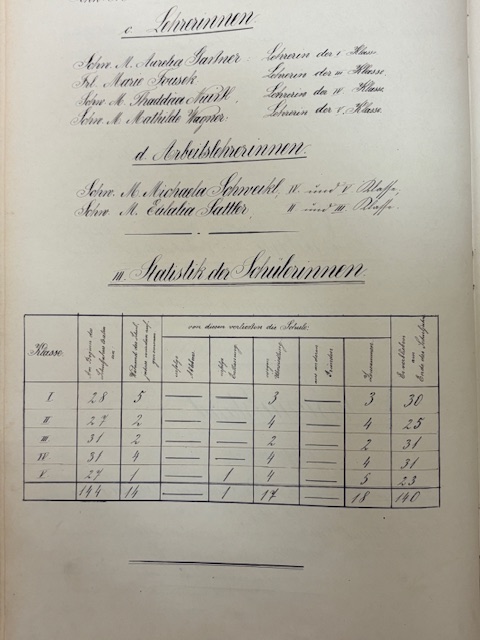 c Lehrerinnen.
Schw. M. Aurelia Gartner Lehrerin der I Klasse.
Frl. Marie Lehrerin der III Klasse.
Schw. M. Thaddäa Lehrerin der IV. Klasse.
Schw. M. Mathilde Wagner. Lehrerin der V. Klasse.
d. Arbeitslehrerinnen.
Schw. M. Michaela Schweikl, IV. und V Klasse,
Schw. M. Eulalia Sattler, II und III. Klasse.
III. Statistik der Schülerinnen.
von diesen verließen die Schule:
Klasse. Am Beginn des Schuljahres traten an. Während des Schuljahres wurden aufgenommen infolge infolge Entlassung wegen aus anderen Gründen Zusammen. Es verblieben am Ende des Schuljahres
I. 28 5 — — 3 — 3 30
II 27 2 — — 4 — 4 25
III 31 2 — — 2 — 2 31
IV 31 4 — — 4 — 4 31
V 27 1 — 1 4 — 5 23
144 14 — 1 17 — 18 140